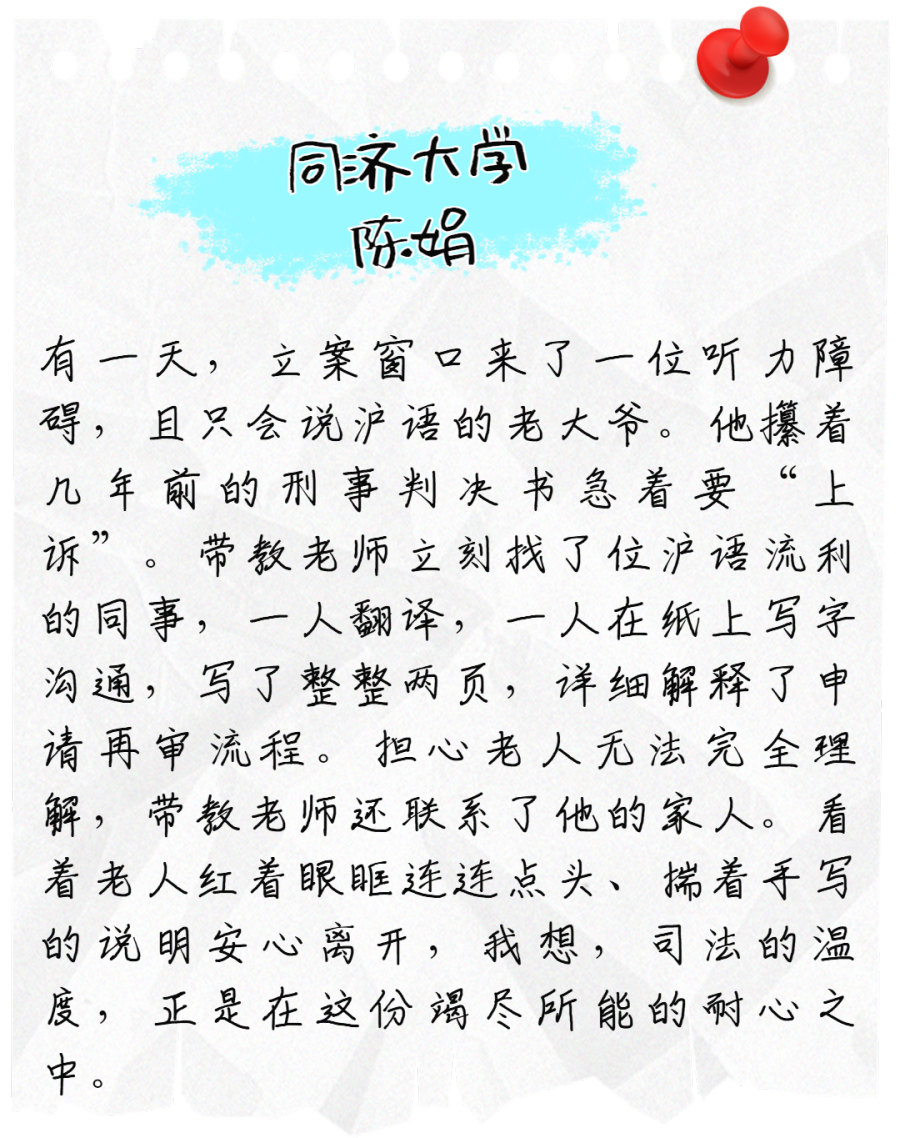 同济大学
陈娟
有一天，立案窗口来了一位听力障
碍，且只会说沪语的老大爷。他攥着
几年前的刑事判决书急着要“上
诉”。带教老师立刻找了位沪语流利
的同事，一人翻译，一人在纸上写字
沟通，写了整整两页，详细解释了申
请再审流程。担心老人无法完全理
解，带教老师还联系了他的家人。看
着老人红着眼眶连连点头、揣着手写
的说明安心离开，我想，司法的温
度，正是在这份竭尽所能的耐心之
中。